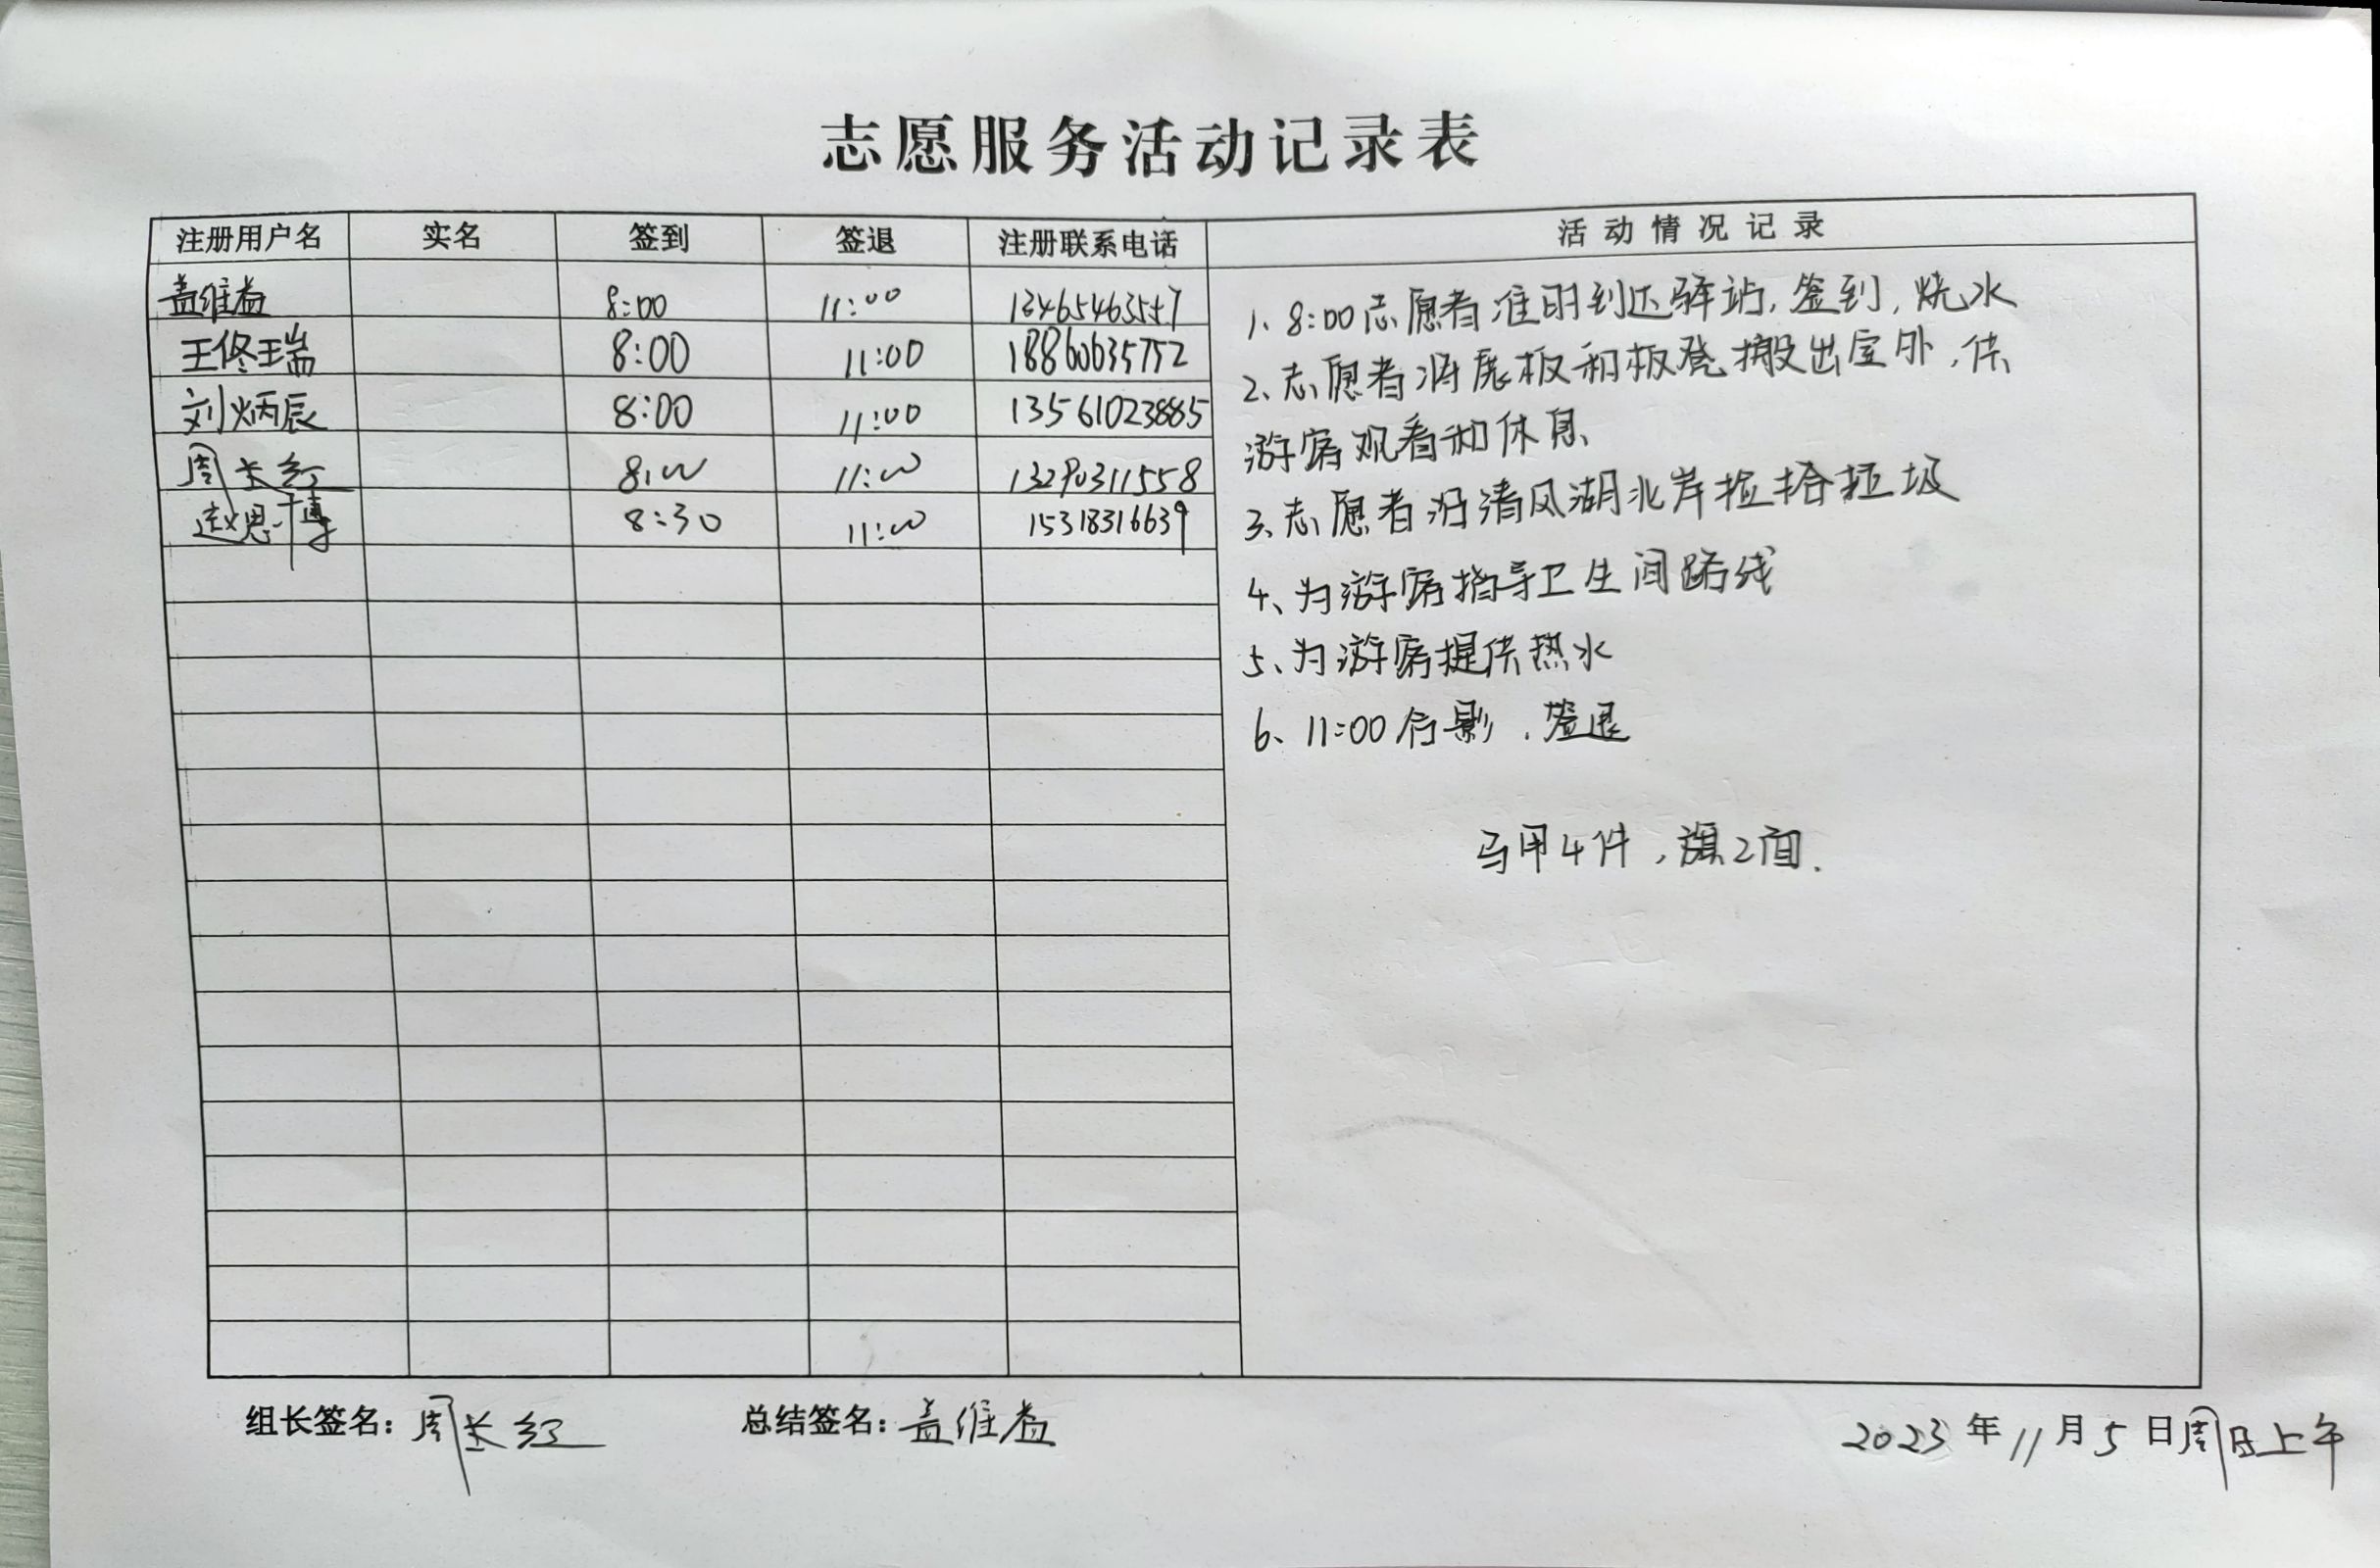 志愿服务活动记录表
注册用户名 实名 签到 签退 注册联系电话 活动情况记录
盖维益 8:00 11:00 13465463547
王佟瑞 8:00 11:00 18860635752
刘炳辰 8:00 11:00 13561023885
周长红 8:00 11:00 13290311558
赵思博 8:30 11:00 15318316639
1、8:00志愿者准时到达驿站,签到,烧水
2、志愿者将展板和板凳搬出室外,供
游客观看和休息、
3、志愿者沿清风湖北岸捡拾垃圾
4、为游客指导卫生间路线
5、为游客提供热水
6、11:00合影,签退
马甲4件,旗2面.
组长签名:周长红 总结签名:盖维益
2023年11月5日周日上午